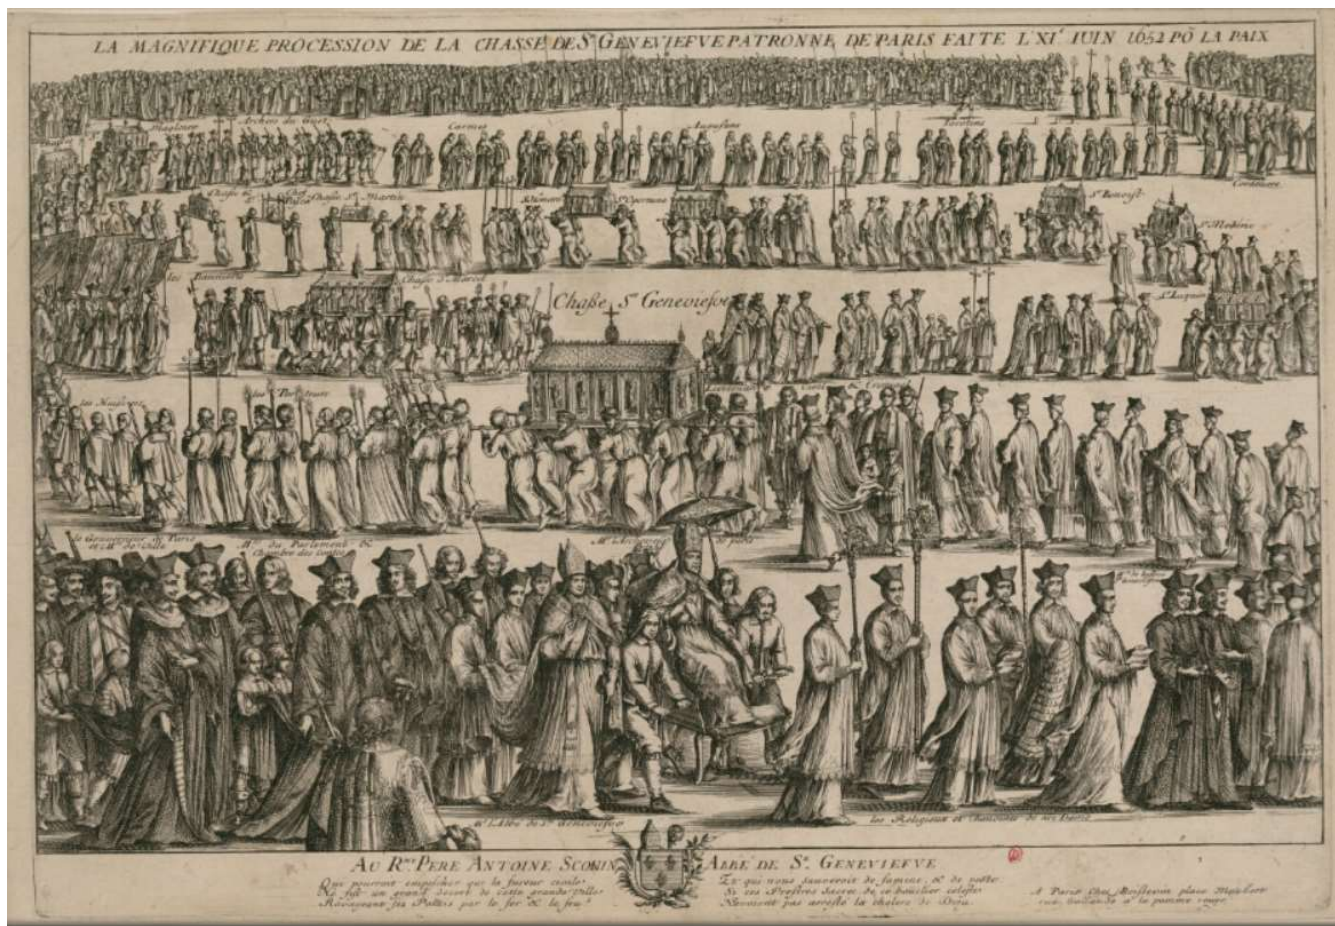 LA MAGNIFIQUE PROCESSION DE LA CHASSE DE Ste GENEVIEFVE PATRONNE DE PARIS FAITE L'XIe IUIN 1652 PÕ LA PAIX
Archers du Guet
Carmes
Augustins
Iacobins
Cordeliers
Chasse St Martin
Ste Oportune
St Benoist
St Mederic
les Bannieres
Chasse St Marcel
Chaße Ste Geneviefve
le Gouverneur de Paris
et Mrs de Ville
Mrs du Parlement &
Chambre des Contes
Mr l'Abbé de Ste Geneviefve
les Religieux et Chanoines de nre Dame
AU Rme PERE ANTOINE SCONIN ABBÉ DE Ste GENEVIEFVE
Qui pourroit empescher que la fureur civile
Ne fist un grand desert de cette grande Ville
Ravageant ses Palais par le fer & le feu
Et qui nous sauveroit de famine, & de peste
Si ces Prestres sacrez de ce bouclier celeste
N'avoient pas arresté la cholere de Dieu
A Paris Chez Boissevin place Maubert